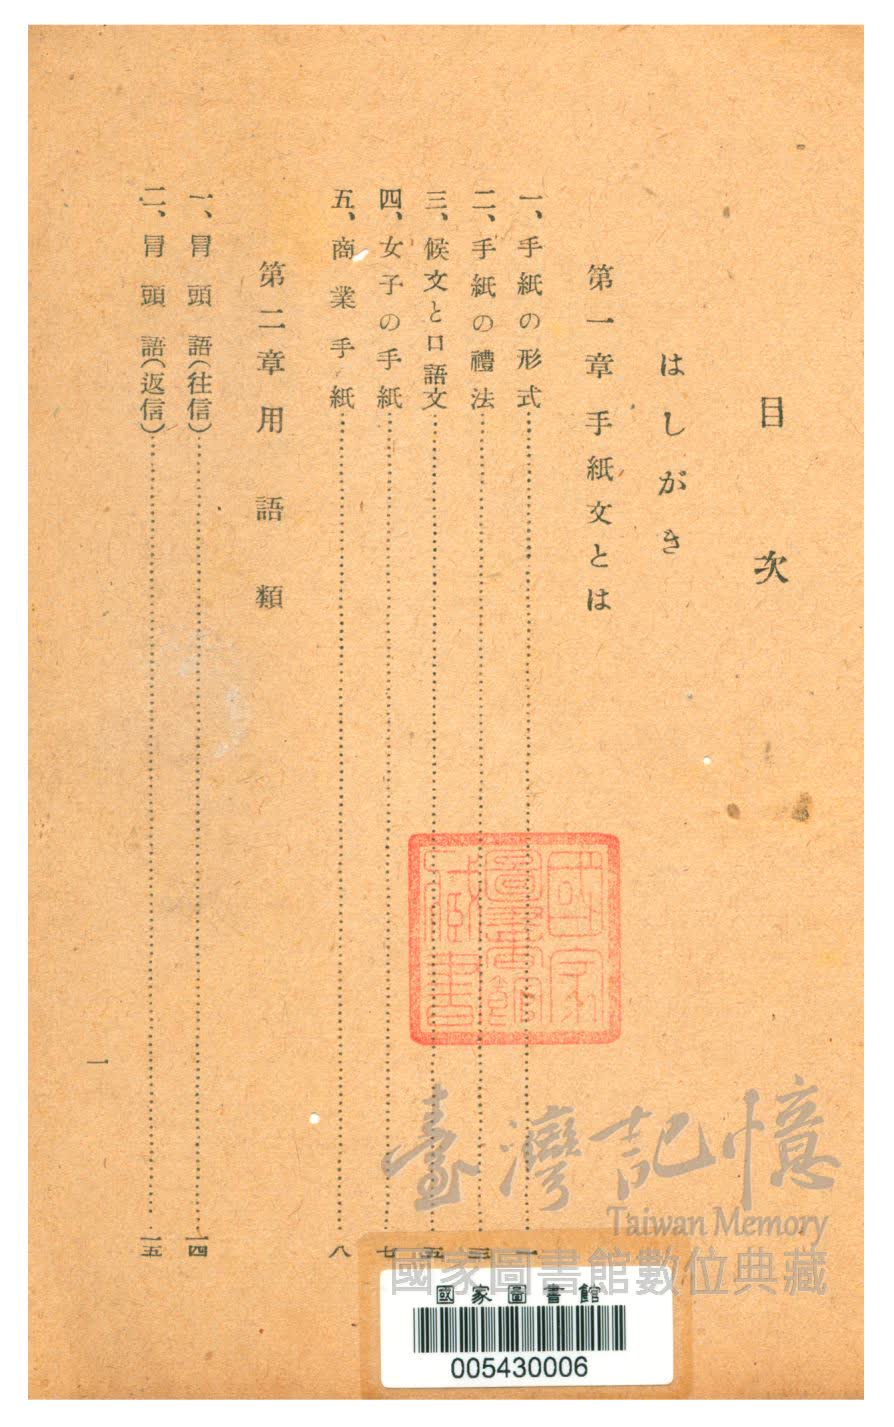 目次
はしがき
第一章 手紙文とは
一、手紙の形式……一
二、手紙の禮法……三
三、候文と口語文……五
四、女子の手紙……七
五、商業手紙……八
第二章 用語類
一、冒頭語(往信)……一四
二、冒頭語(返信)……一五
一
國家圖書館藏書
臺灣記憶
Taiwan Memory
國家圖書館數位典藏
國家圖書館
005430006